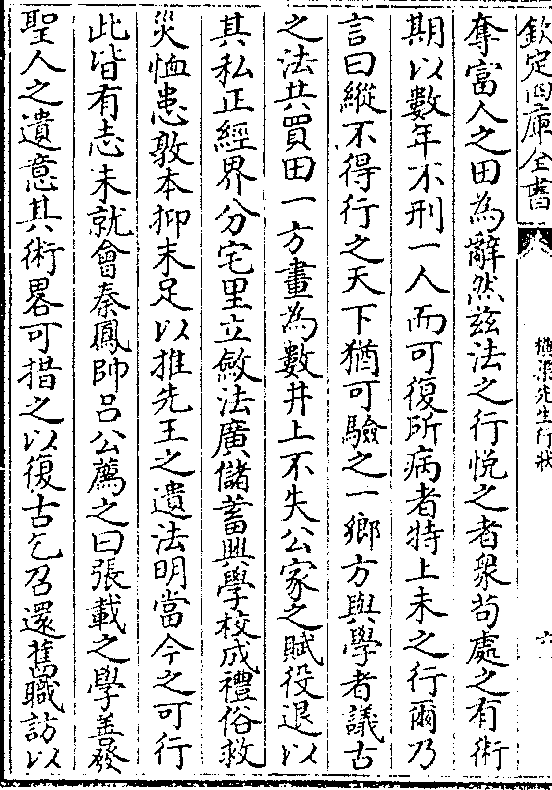 欽定四庫全書
橫渠先生行狀
六
奪富人之田為辭然兹法之行恱之者衆茍處之有術
期以數年不刑一人而可復所病者特上未之行爾乃
言曰縱不得行之天下猶可驗之一鄉方與學者議古
之法共買田一方畫為數井上不失公家之賦役退以
其私正經界分宅里立斂法廣儲蓄興學校成禮俗救
災恤患敦本抑末足以推先王之遺法明當今之可行
此皆有志未就會秦鳳帥吕公薦之曰張載之學善發
聖人之遺意其術畧可措之以復古乞召還舊職訪以